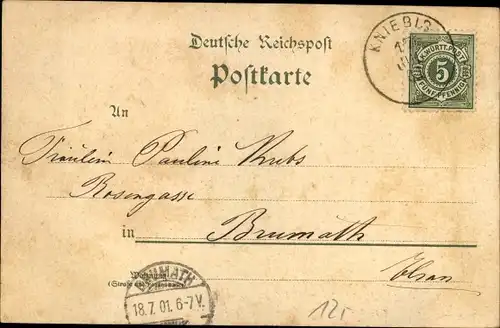 Deutsche Reichspost
Postkarte
KNIEBIS
K. WÜRTT. POST
5
FÜNF PFENNIG
An
Fräulein Pauline Krebs
Rosengasse
in Brumath
Elsass
Wohnung
(Straße und Hausnummer)
BRUMATH
18.7.01. 6-7V.
12,-